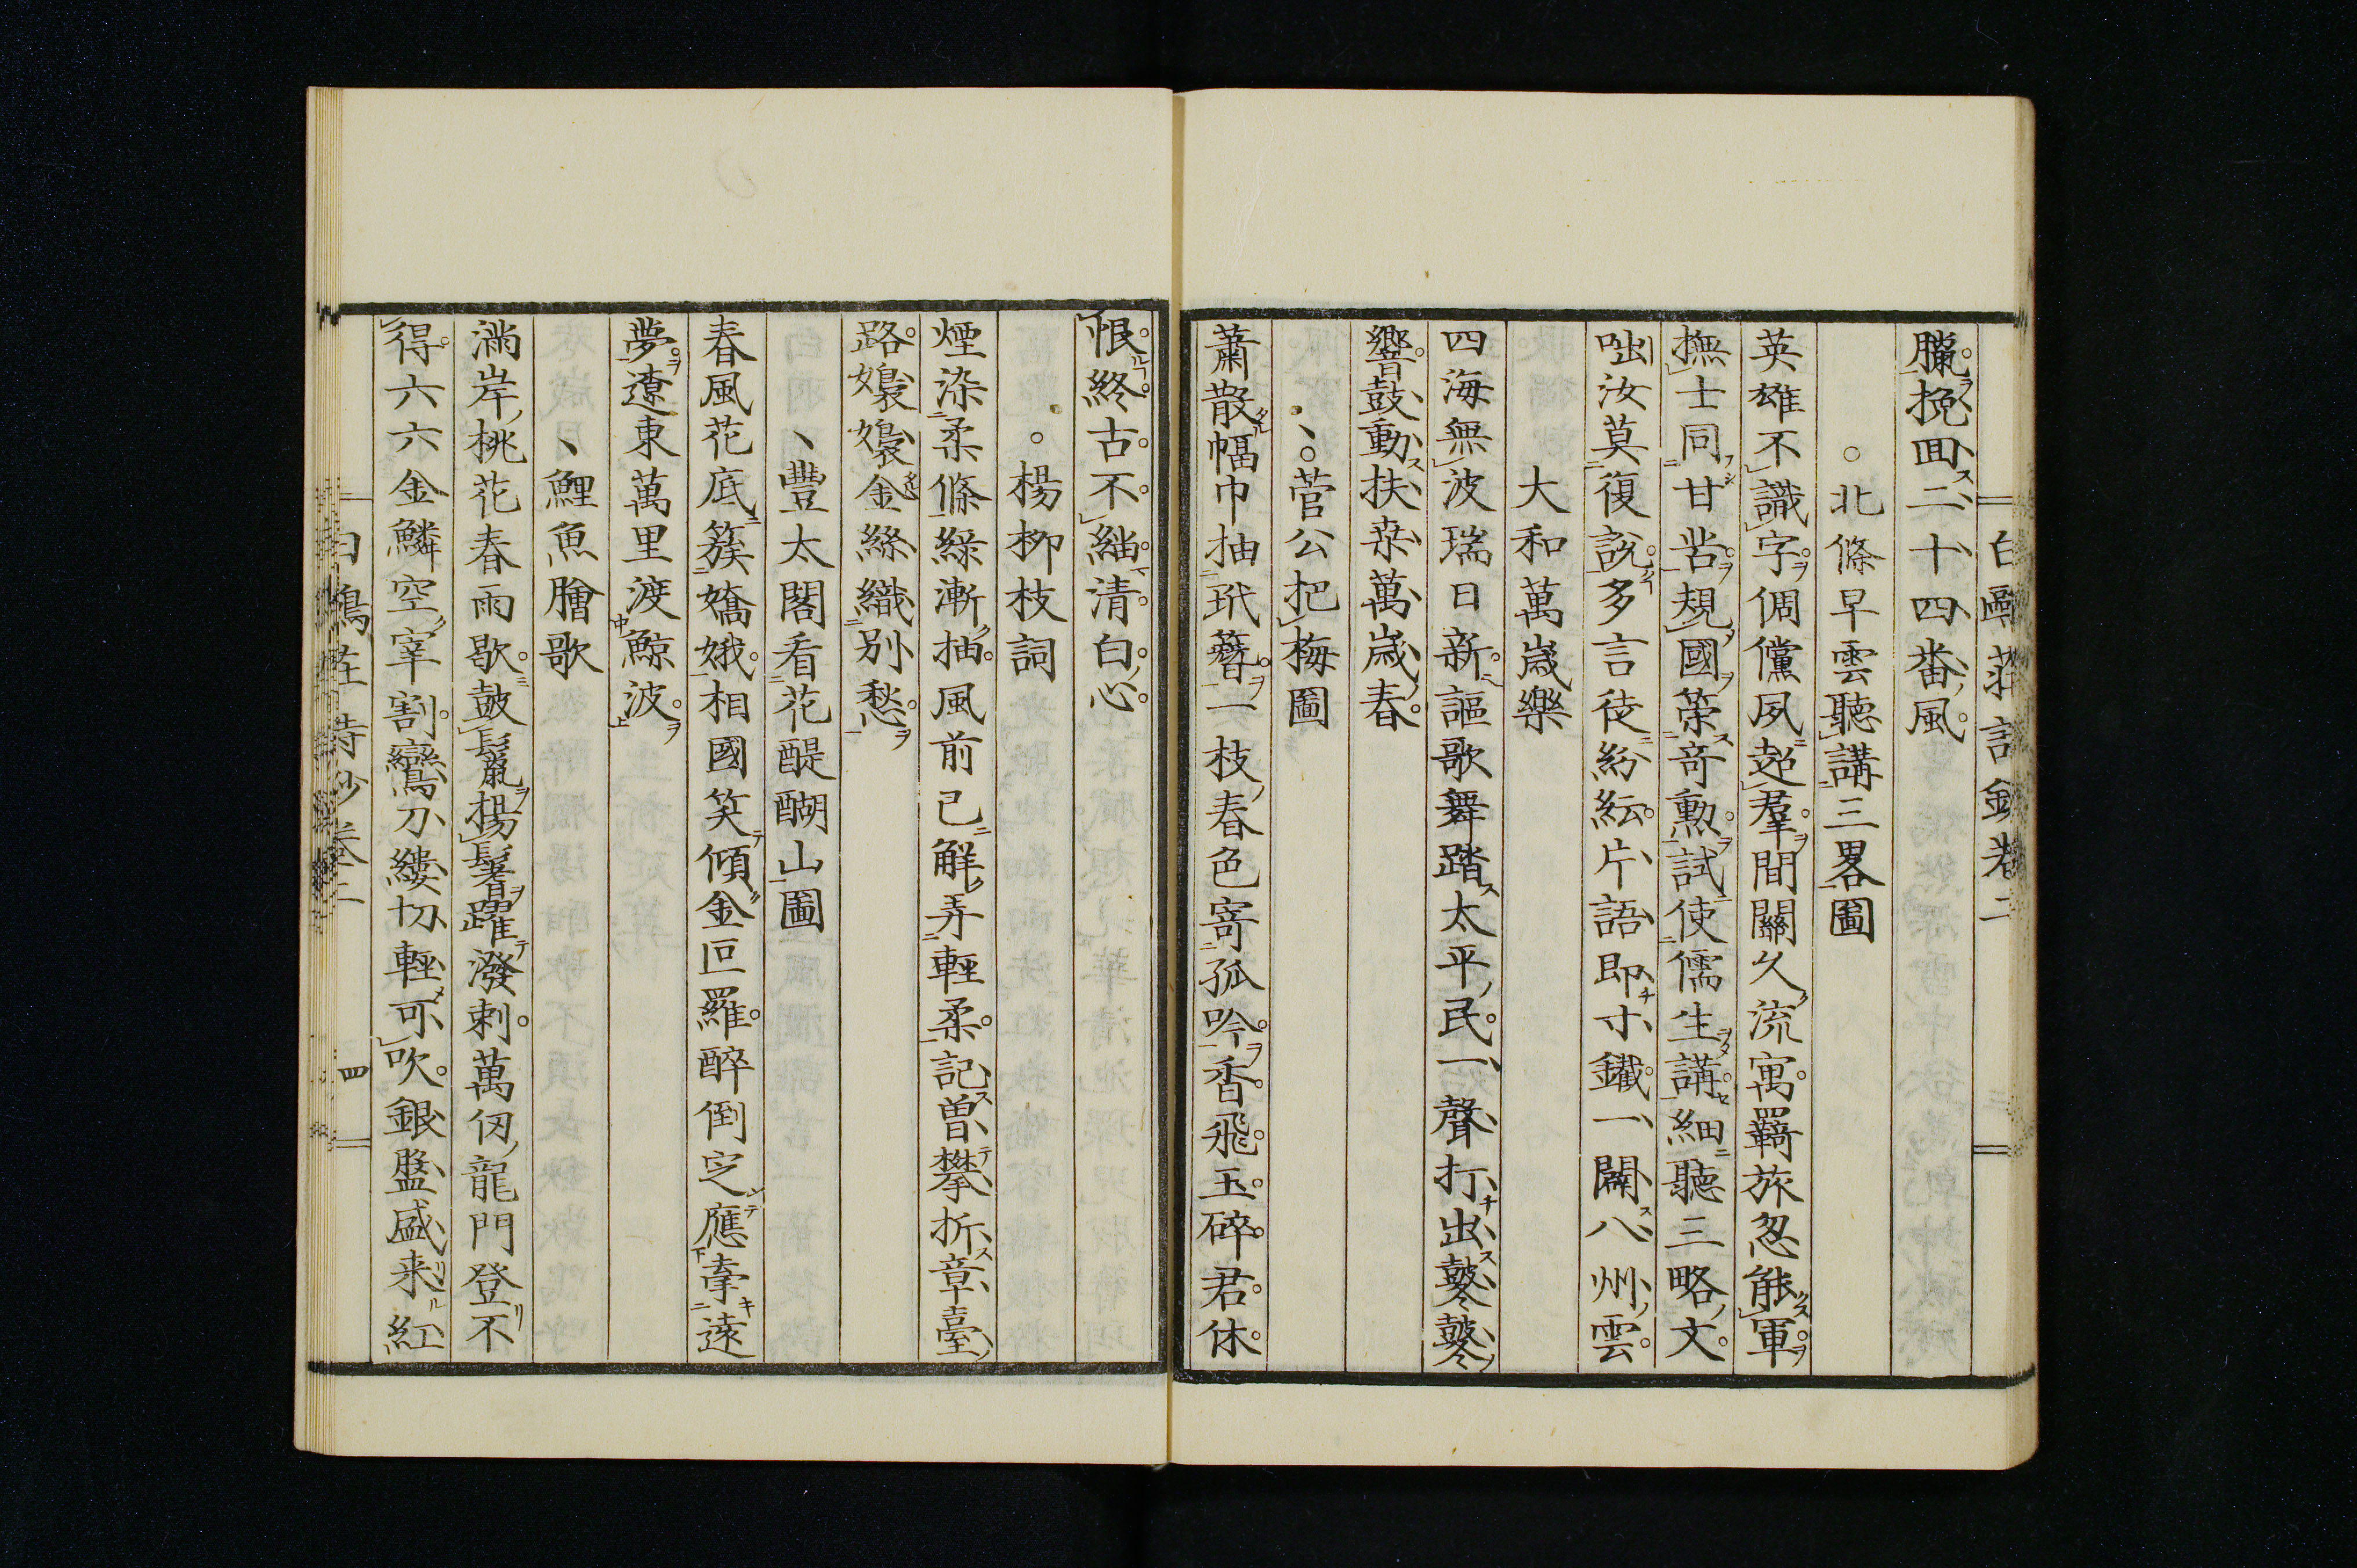 臘挽回二十四番風
北條早雲聽講三畧圖
英雄不識字倜儻夙超羣間關久流寓羇旅忽能軍
撫士同甘苦規國策奇勲試使儒生講細聽三略文
咄汝莫復說多言徒紛紜片語即寸鐵一闢八州雲
大和萬歲樂
四海無波瑞日新謳歌舞踏太平民一聲打出鼕鼕
響鼓動扶桒萬歲春
菅公把梅圖
蕭散幅巾抽玳簪一枝春色寄孤吟香飛玉碎君休
恨終古不緇清白心
楊柳枝詞
煙染柔條綠漸抽風前已解弄輕柔記曾攀折章臺
路嬝嬝金絲織別愁
豐太閤看花醍醐山圖
春風花底簇嬌娥相國笑傾金叵羅醉倒定應牽遠
夢遼東萬里渡鯨波
鯉魚膾歌
滿岸桃花春雨歇鼓鬣揚鬐躍潑剌萬仭龍門登不
得六六金鱗空宰割鸞刀縷切輕可吹銀盤盛来紅
白鷗莊詩鈔卷二
四